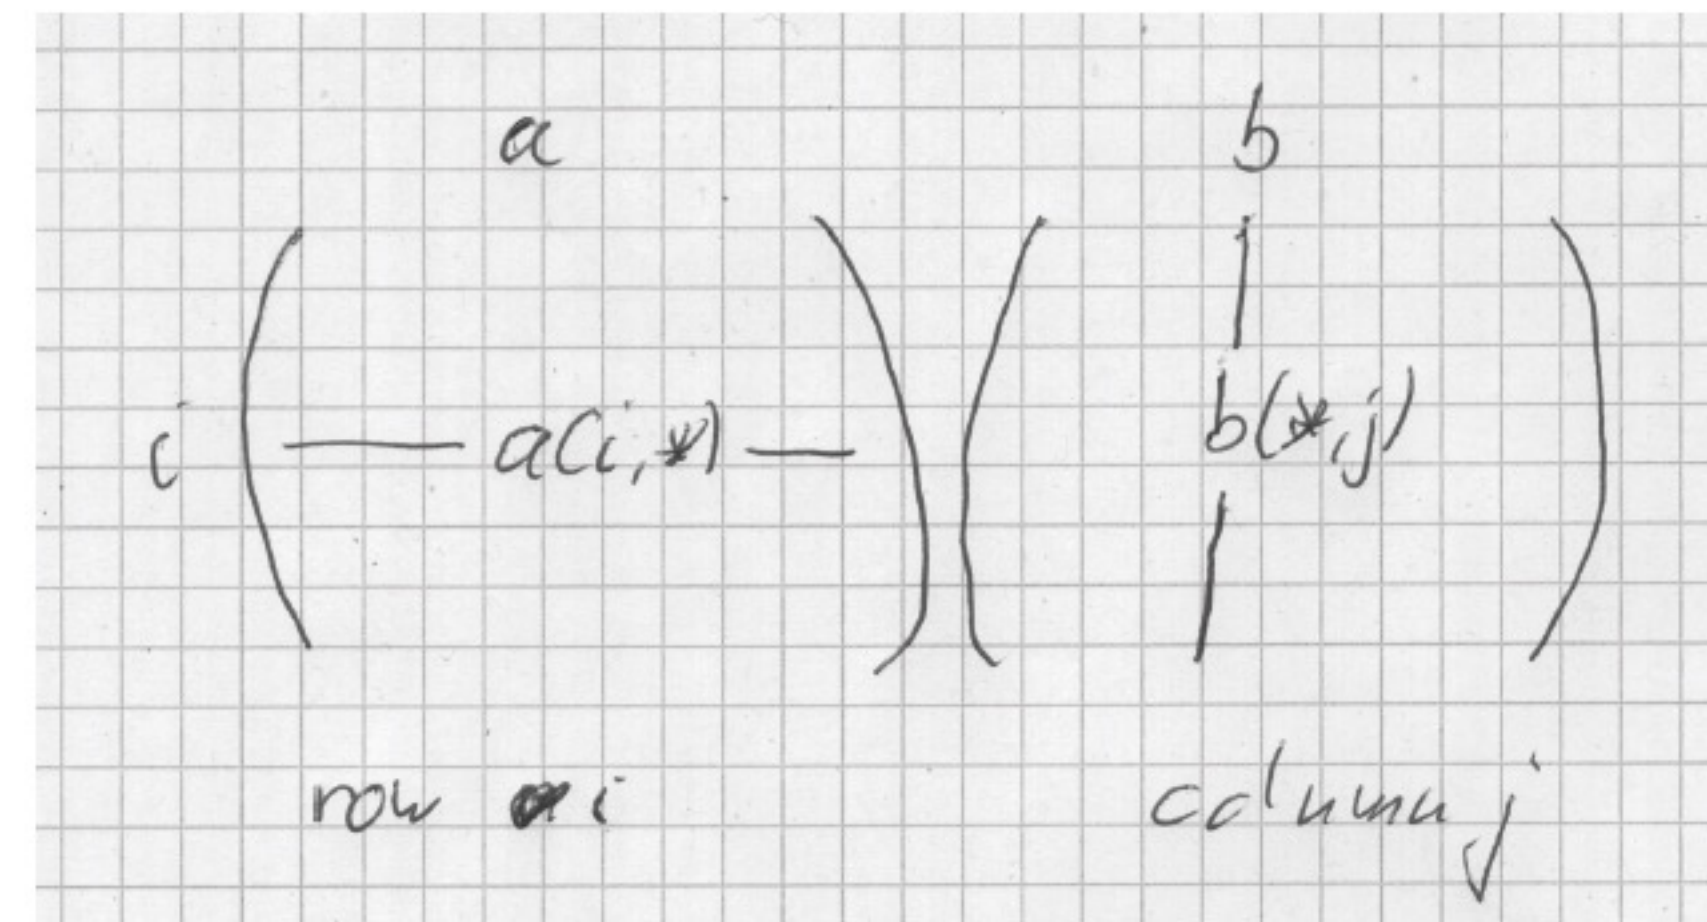 a b
i a(i,*) b(*,j)
row i column j